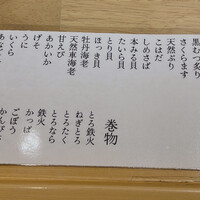 黒むつ炙り
さくらます
天然ぶり
こはだ
しめさば
本みる貝
たいら貝
とり貝
ほっき貝
牡丹海老
天然車海老
甘えび
あかいか
げそ
うに
いくら
巻物
とろ鉄火
ねぎとろ
とろたく
とろなら
鉄火
かっぱ
ごぼう